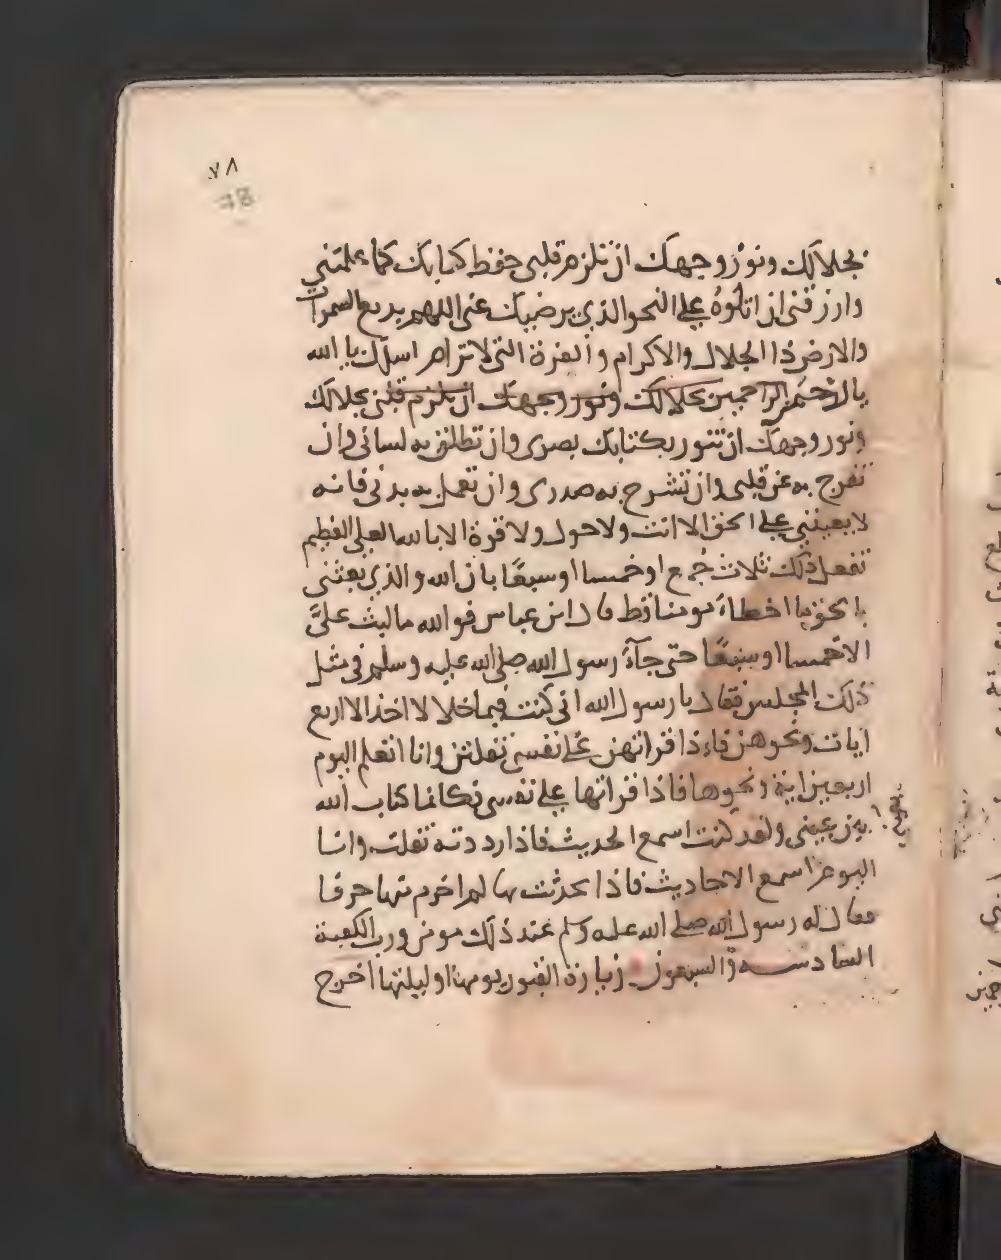 ٧٨
78
بجلالك ونور وجهك ان تلزم قلبي حفظ كتابك كما علمتني
وارزقني ان اتلوه على النحو الذي يرضيك عني اللهم بديع السموات
والارض ذا الجلال والاكرام والعزة التي لا ترام اسلك يا الله
يا لرحمن الراحمين بجلالك ونور وجهك ان تلزم قلبي بجلالك
ونور وجهك ان تنور بكتابك بصري وان تطلق به لساني وان
تفرج به عن قلبي وان تشرح به صدري وان تعمل به بدني فانه
لا يعينني على الحق الا انت ولا حول ولا قوة الا بالله العلي العظيم
تفعل ذلك ثلاث جمع او خمسا او سبعا باذن الله والذي بعثني
بالحق ما اخطاء مومنا قط قال ابن عباس فوالله ما لبث علي
الا خمسا او سبعا حتى جاء رسول الله صلى الله عليه وسلم في مثل
ذلك المجلس فقال يا رسول الله اني كنت فيما خلا لا اخذ الا اربع
ايات ونحوهن فاذا قراتهن على نفسي تفلتن وانا اتعلم اليوم
اربعين اية ونحوها فاذا قراتها على نفسي فكانما كتاب الله
بين عيني ولقد كنت اسمع الحديث فاذا رددته تفلت وانا
اليوم اسمع الاحاديث فاذا تحدثت بها لم اخرم منها حرفا
فقال له رسول الله صلى الله عليه وسلم عند ذلك مومن ورب الكعبة
السادسه والسبعون زيارة القبور يومها او ليلتها اخرج